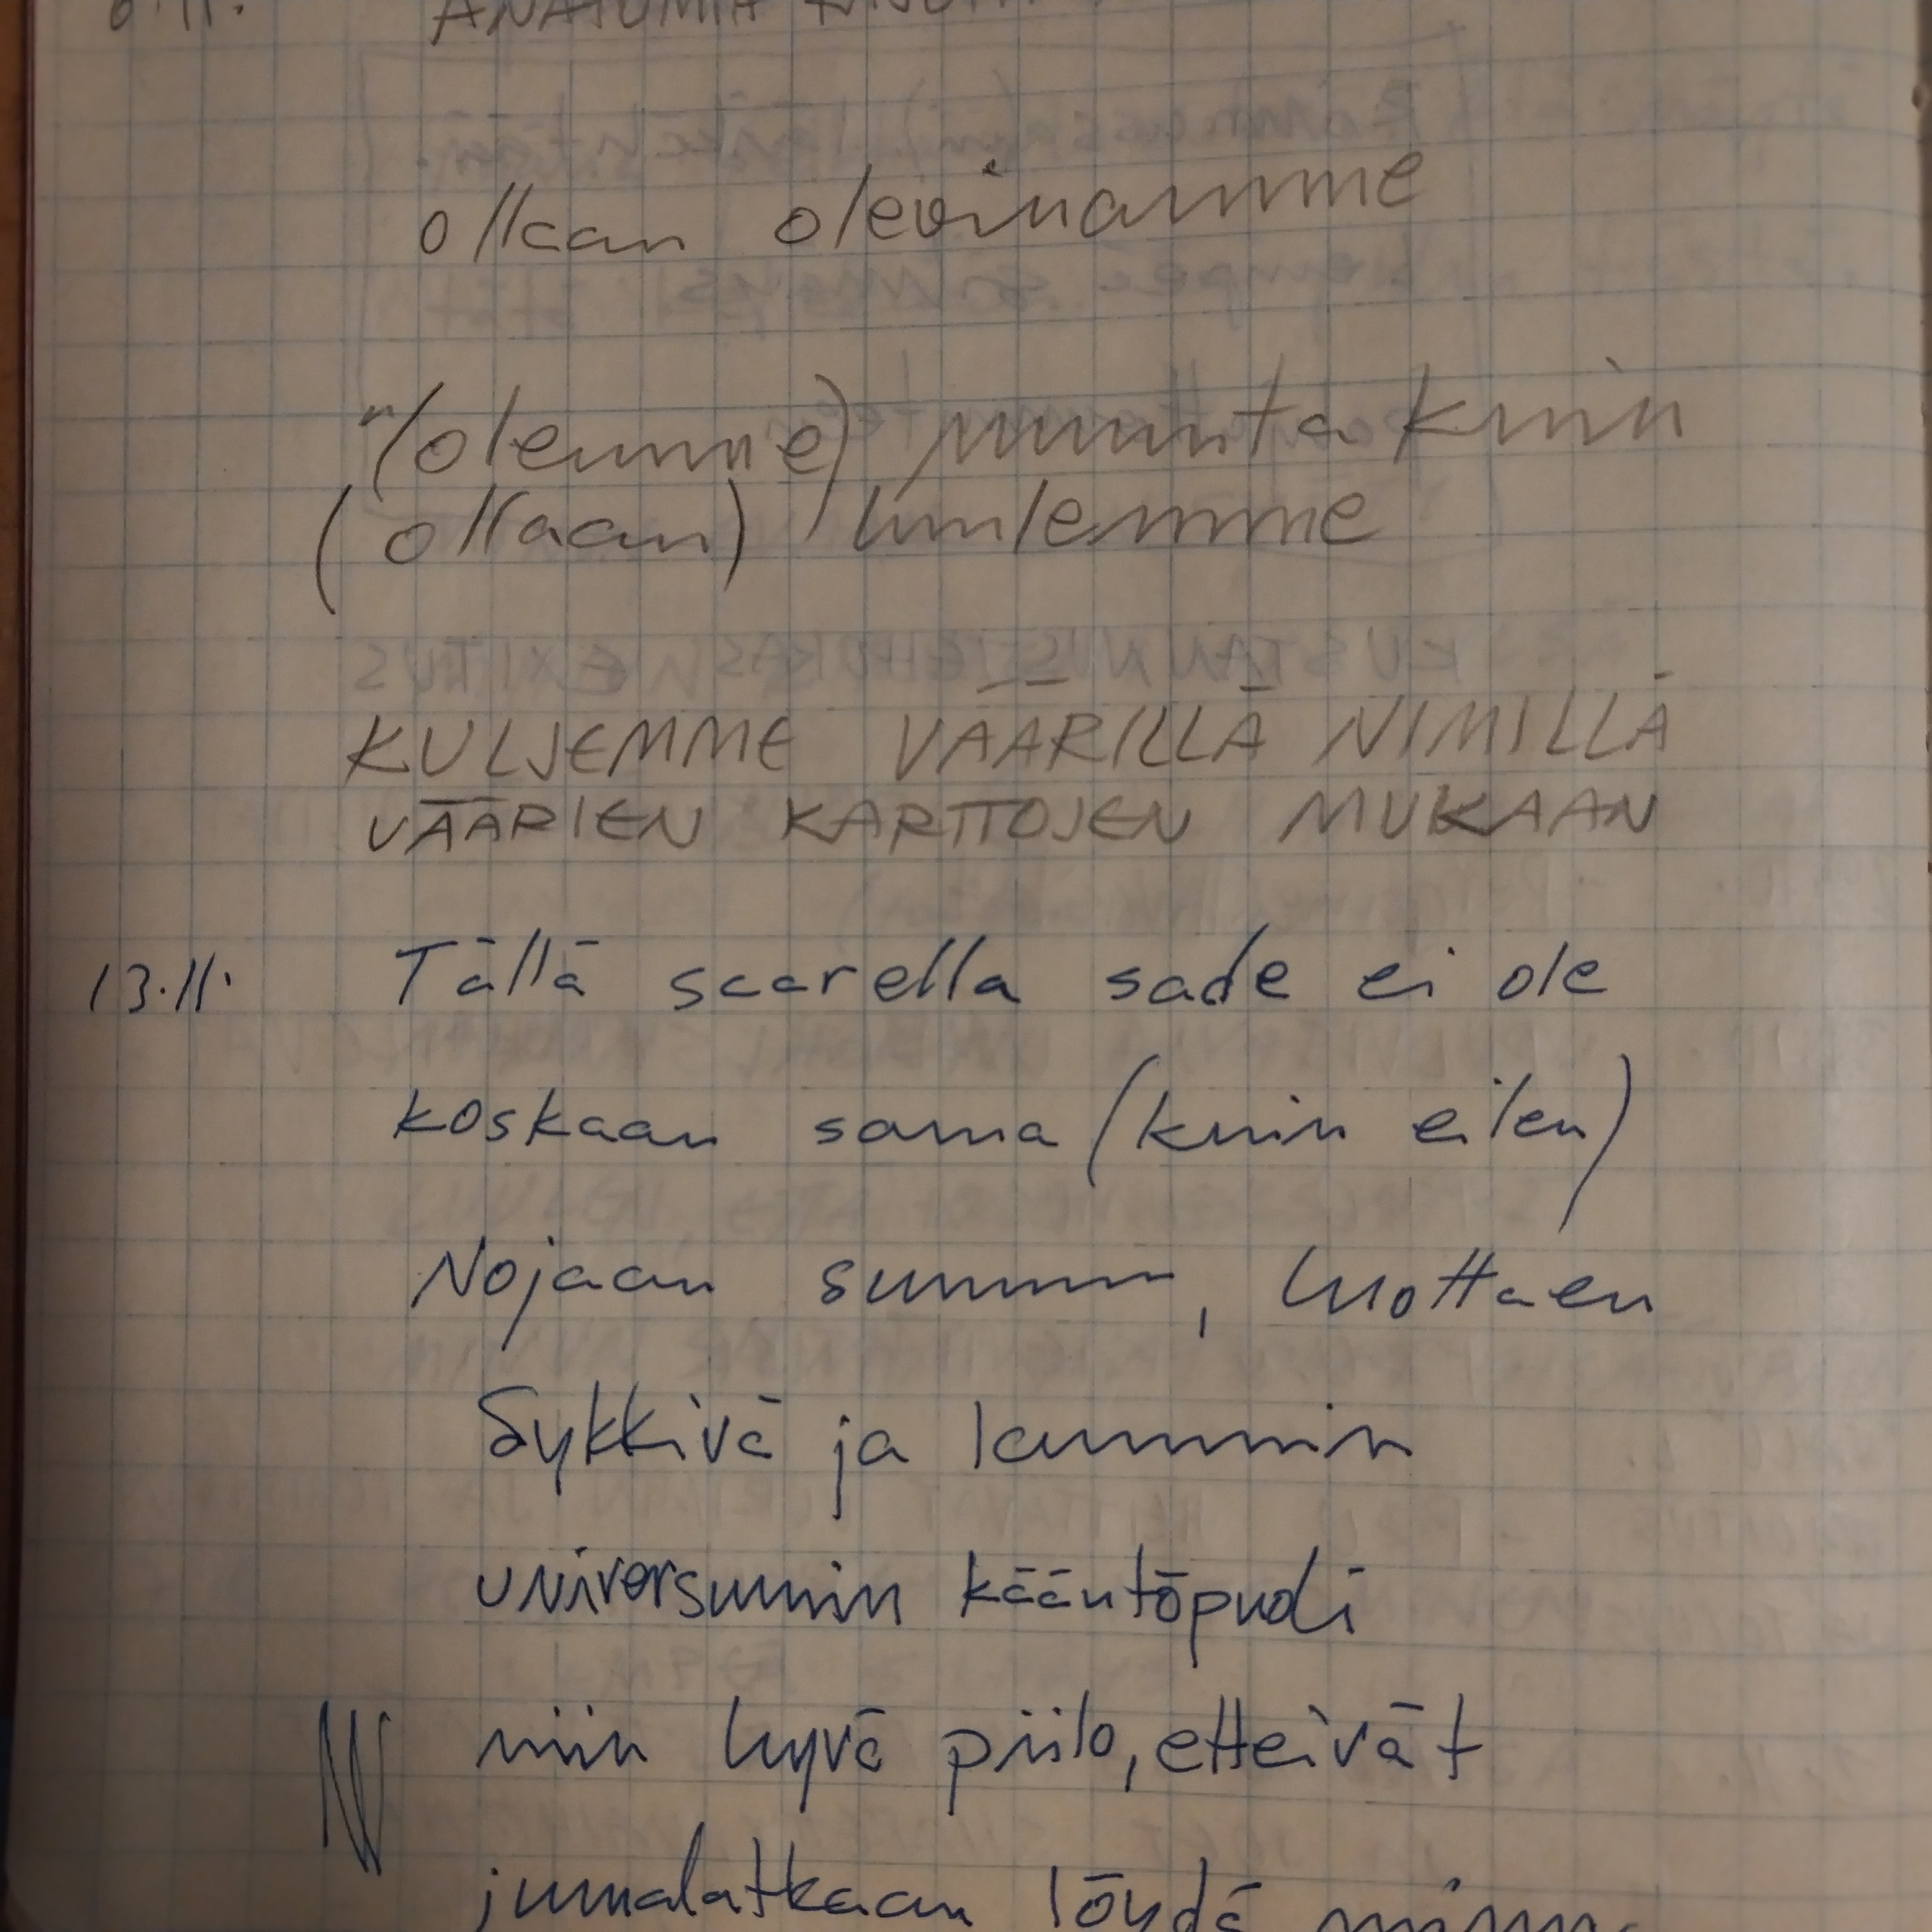 6.11. ANATOMIA
ollaan olevinamme
"(olemme) muuta kuin
(ollaan) luulemme
KULJEMME VÄÄRILLÄ NIMILLÄ
VÄÄRIEN KARTTOJEN MUKAAN
13.11. Tällä saarella sade ei ole
koskaan sama (kuin eilen)
Nojaan sumuun, luottaen
Sykkivä ja lämmin
universumin kääntöpuoli
niin hyvä piilo, etteivät
jumalatkaan löydä minua